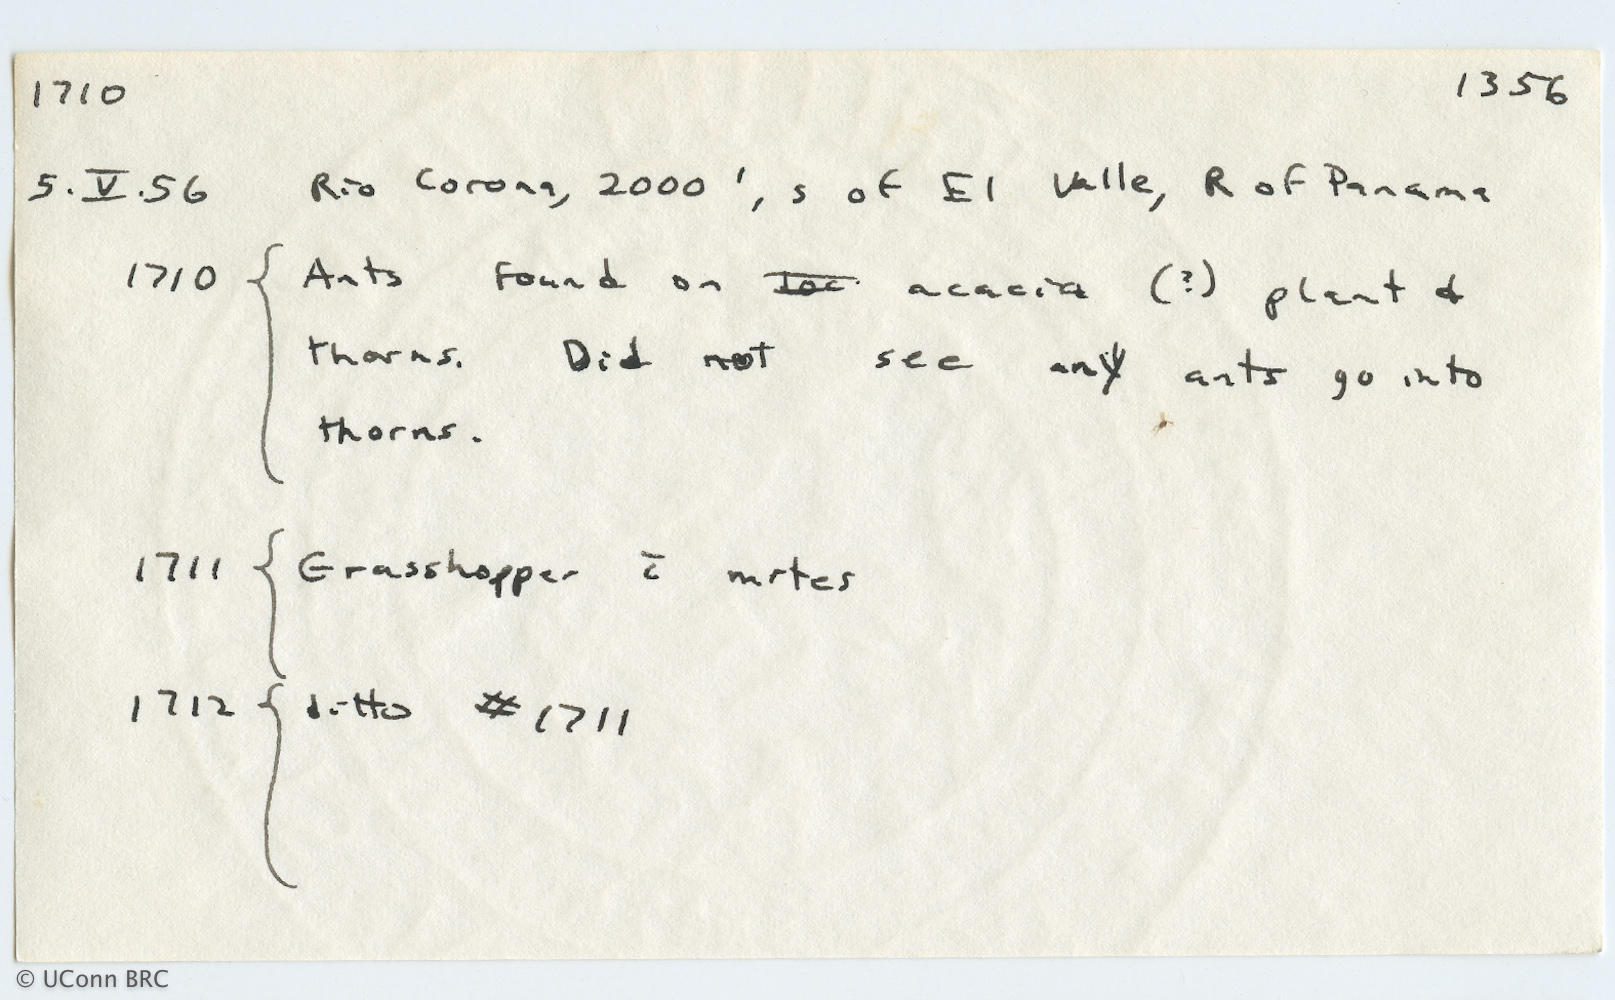 1710 1356
5.V.56 Rio Corona, 2000', s of El Valle, R of Panama
1710 { Ants found on acacia (?) plant &
thorns. Did not see any ants go into
thorns.
1711 { Grasshopper c̄ mites
1712 { ditto # 1711
© UConn BRC